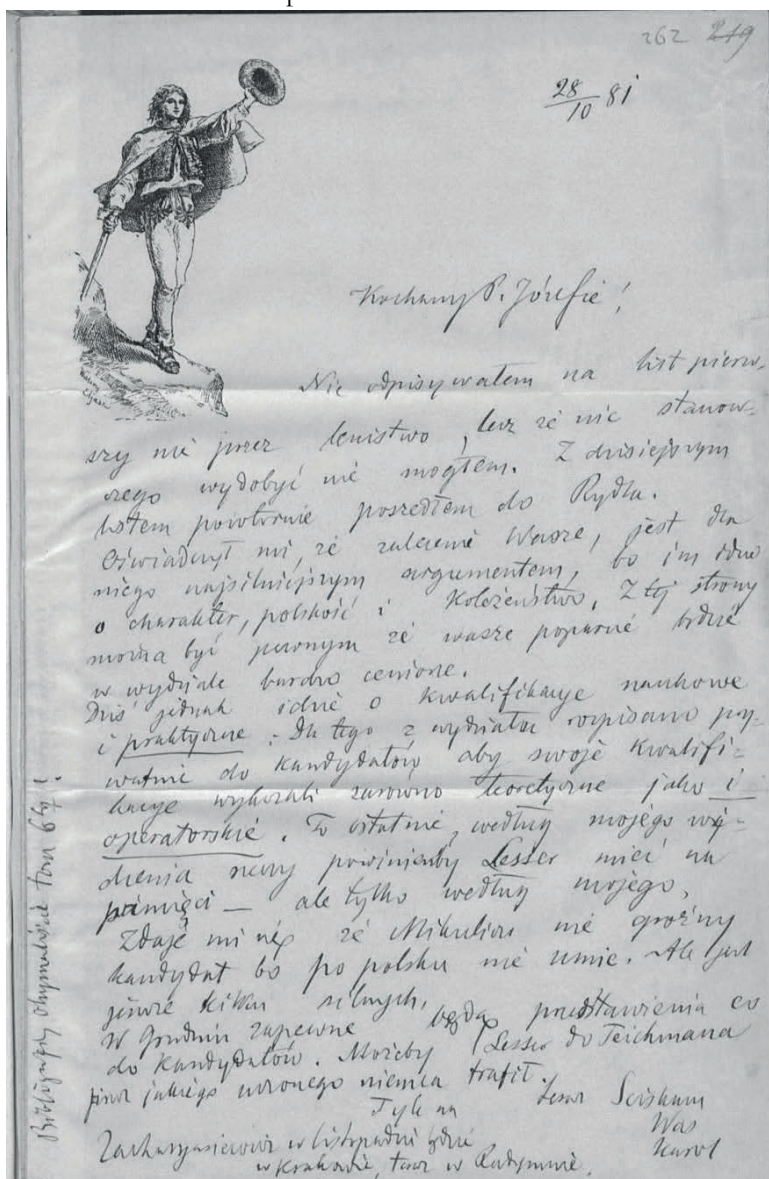 262 219
28/10 81
Kochany P. Józefie!
Nie odpisywałem na list pierw-
szy nie przez lenistwo, lecz że nic stanow-
czego wydobyć nie mogłem. Z dzisiejszym
listem powtórnie poszedłem do Rydla.
Oświadczył mi, że zalecenie Wasze, jest dla
niego najsilniejszym argumentem, bo im idzie
o charakter, polskość i koleżeństwo. Z tej strony
można być pewnym że wasze poparcie będzie
w wydziale bardzo cenione.
Dziś jednak idzie o kwalifikacje naukowe
i praktyczne. Dla tego z wydziału rozpisano pry-
watnie do kandydatów aby swoje kwalifi-
kacje wykazali zarówno teoretyczne jako i
operatorskie. To ostatnie, według mojego wi-
dzenia rzeczy powinienby Lesser mieć na
pamięci — ale tylko według mojego.
Zdaje mi się że Mikulicz nie groźny
kandydat bo po polsku nie umie. Ale jest
jeszcze kilku silnych.
W grudniu zapewne będą przedstawienia co
do kandydatów. Możeby Lesser do Teichmana
przez jakiego uczonego niemca trafił.
Tyle na teraz Ściskam
Was
Karol
Zacharyasiewicz w listopadzie będzie
w Krakowie, teraz w Radymnie.
Bibliografię otrzymaliście tom 6ty?